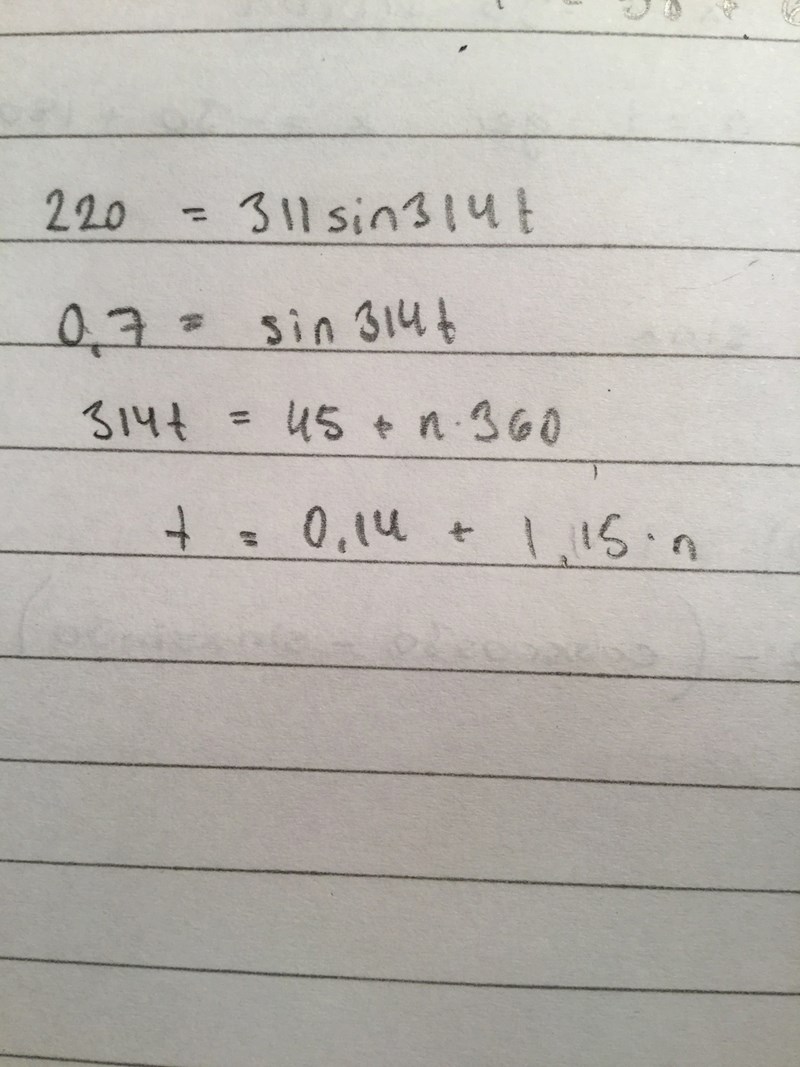 220 = 311 sin 314t
0,7 = sin 314t
314t = 45 + n·360
t = 0,14 + 1,15·n